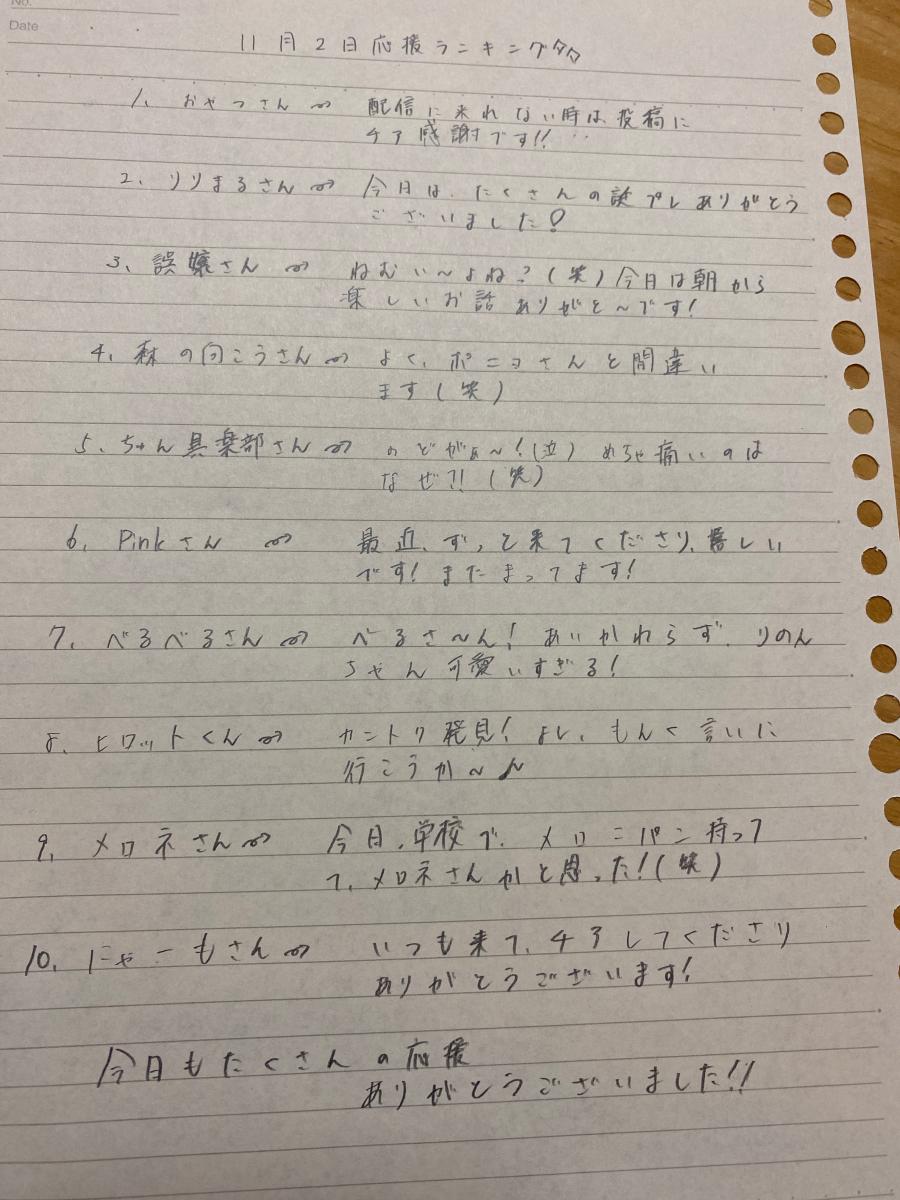 No.
Date
11月2日応援ランキング
1、おやつさん⇝ 配信に来れない時は、投稿に
チア感謝です!!
2、りりまるさん⇝ 今日は、たくさんの誕プレありがとう
ございました!
3、誤嬢さん⇝ ねむい〜よね?(笑)今日は朝から
楽しいお話ありがと〜です!
4、森の向こうさん⇝ よく、ポニョさんと間違い
ます(笑)
5、ちゃん倶楽部さん⇝ のどがぁ〜!(泣)めちゃ痛いのは
なぜ?!(笑)
6、Pinkさん⇝ 最近、ずっと来てくださり、嬉しい
です!またまってます!
7、べるべるさん⇝ べるさ〜ん!あいかわらず、りのん
ちゃん可愛いすぎる!
8、ヒロットくん⇝ カントク発見!よし、もんく言いに
行こうか〜
9、メロネさん⇝ 今日、学校で、メロンパン持って
て、メロネさんかと思った!(笑)
10、にゃーもさん⇝ いつも来て、チアしてくださり
ありがとうございます!
今日もたくさんの応援
ありがとうございました!!